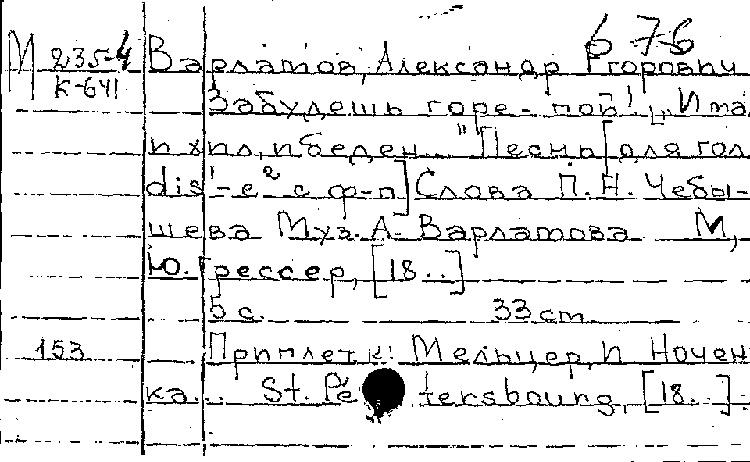 676
М 235-4 Варламов, Александр Егорович
К-641 Забудешь горе - пой! "И та
и хил, и беден..." Песня [для гол.
dis¹-e² с ф-п] Слова П. Н. Чебы-
шева Муз. А. Варламова М,
Ю. Грессер, [18..]
5 с. 33 cm
153 Приплет к: Мельцер, И Ночен
ка... St. Pétersbourg, [18..].